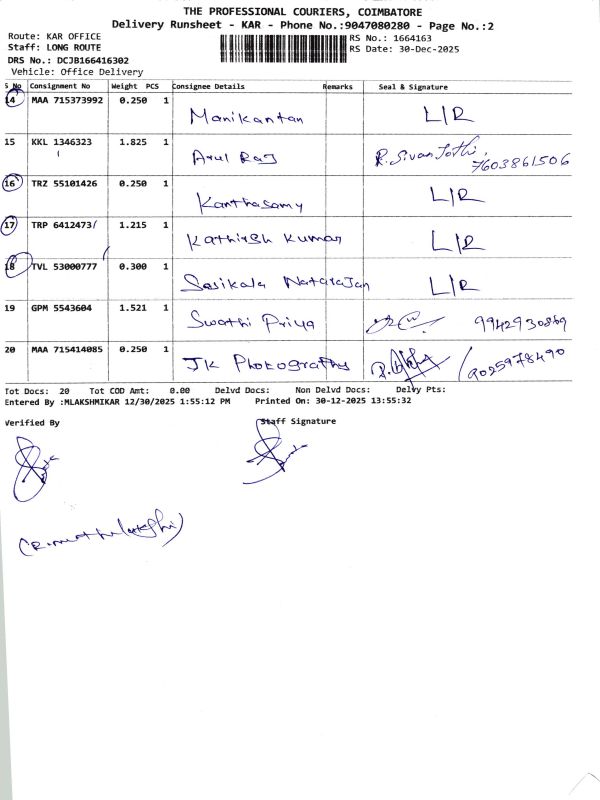 THE PROFESSIONAL COURIERS, COIMBATORE
Delivery Runsheet - KAR - Phone No.:9047080280 - Page No.:2
Route: KAR OFFICE
RS No.: 1664163
Staff: LONG ROUTE
RS Date: 30-Dec-2025
DRS No.: DCJB166416302
Vehicle: Office Delivery
S No Consignment No Weight PCS Consignee Details Remarks Seal & Signature
14 MAA 715373992 0.250 1 Manikantan L/R
15 KKL 1346323 1.825 1 Arul Raj R. Sivan Jothi, 7603861506
16 TRZ 55101426 0.250 1 Kanthasamy L/R
17 TRP 6412473 1.215 1 Kathirsh Kumar L/R
18 TVL 53000777 0.300 1 Sasikala Natarajan L/R
19 GPM 5543604 1.521 1 Swathi Priya 9942930869
20 MAA 715414085 0.250 1 JK Photography 9025978490
Tot Docs: 20 Tot COD Amt: 0.00 Delvd Docs: Non Delvd Docs: Delvy Pts:
Entered By :MLAKSHMIKAR 12/30/2025 1:55:12 PM Printed On: 30-12-2025 13:55:32
Verified By Staff Signature